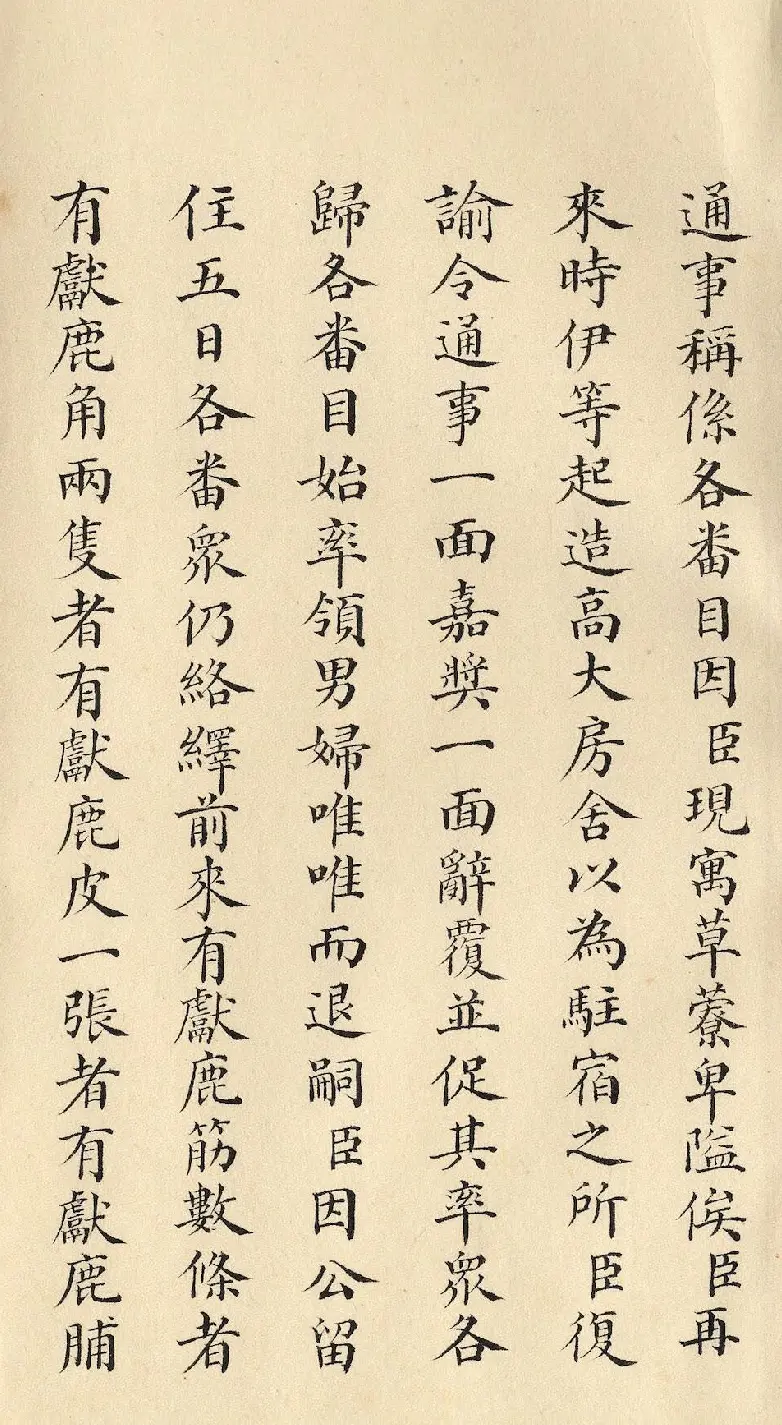 通事稱係各番目因臣現寓草藔卑隘俟臣再
來時伊等起造高大房舍以為駐宿之所臣復
諭令通事一面嘉獎一面辭覆並促其率眾各
歸各番目始率領男婦唯唯而退嗣臣因公留
住五日各番眾仍絡繹前來有獻鹿筋數條者
有獻鹿角兩隻者有獻鹿皮一張者有獻鹿脯